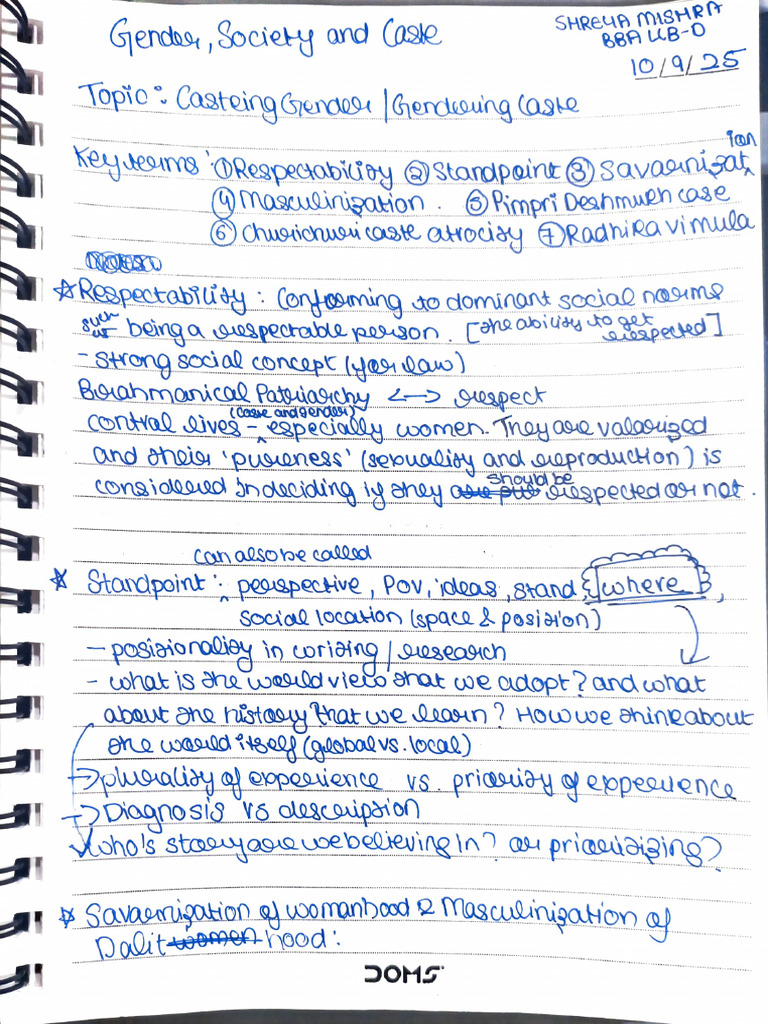 Gender, Society and Caste
SHREYA MISHRA
BBA LLB-D
10/9/25
Topic: Casteing Gender / Gendering Caste
Key terms: ① Respectability ② Standpoint ③ Savarnization
④ Masculinization. ⑤ Pimpri Deshmukh case
⑥ Churichuri caste atrocity ⑦ Radhika vimula
☆ Respectability: Conforming to dominant social norms
such as being a respectable person. [the ability to get respected]
- strong social concept (for law)
Brahmanical Patriarchy <--> respect
control lives - (caste and gender) especially women. They are valorized
and their 'pureness' (sexuality and reproduction) is
considered in deciding if they should be respected or not.
can also be called
☆ Standpoint: perspective, POV, ideas, stand {where},
social location (space & position)
- positionality in writing / research
- what is the world view that we adopt? and what
about the history that we learn? How we think about
the world itself (global vs. local)
→ plurality of experience vs. priority of experience
→ Diagnosis vs description
who's story are we believing in? or prioritizing?
☆ Savarnization of womanhood & Masculinization of
Dalit women hood:
DOMS